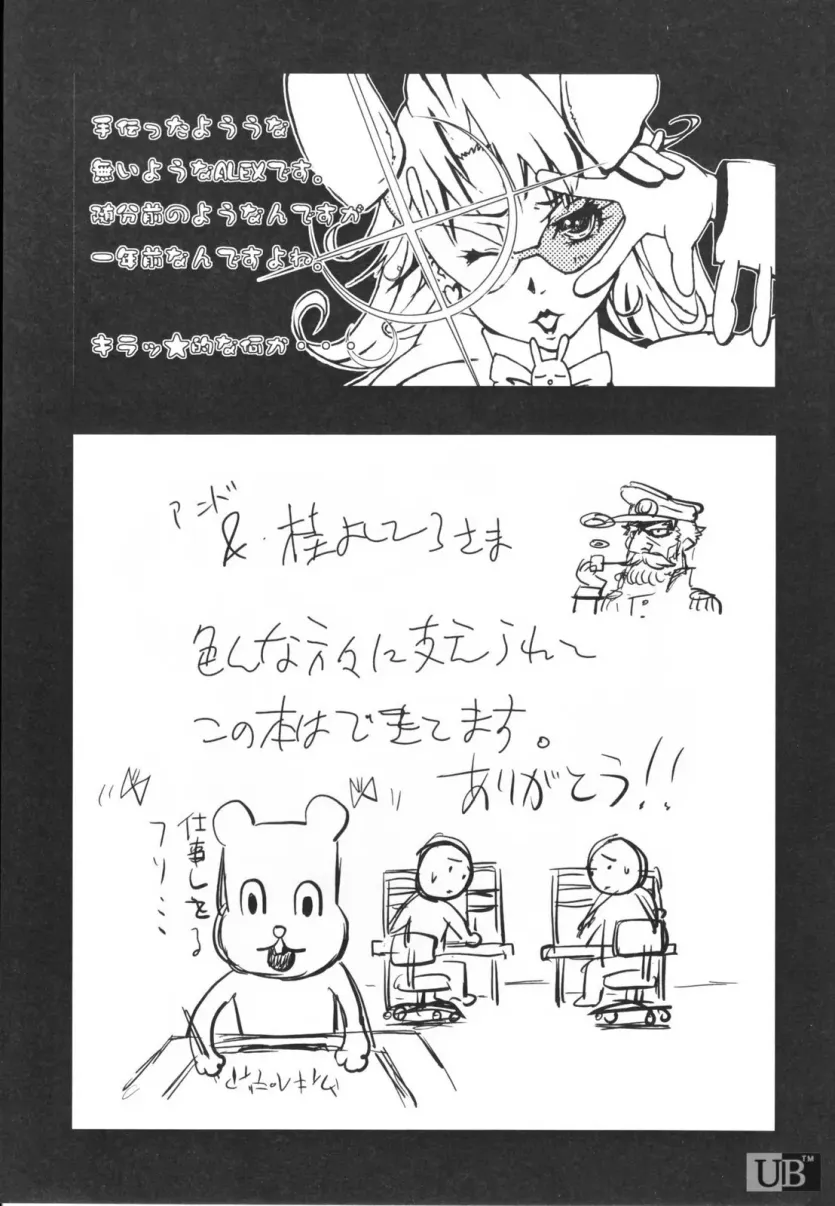 手伝ったようような
無いようなALEXです。
随分前のようなんですが
一年前なんですよね。
キラッ★的な何か・・・。
アンド
&・桂よしひろさま
色んな方々に支えられて
この本はできてます。
ありがとう!!
仕事してる
フリミミ
UB™